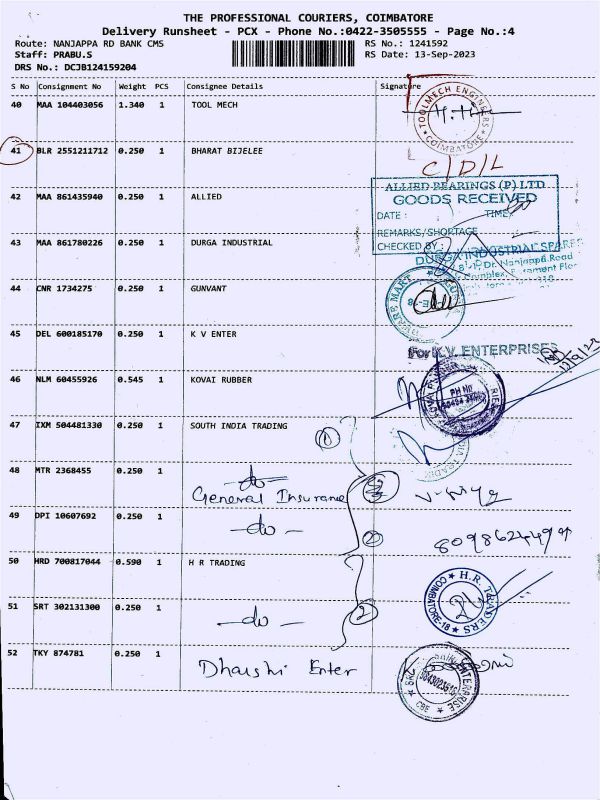 THE PROFESSIONAL COURIERS, COIMBATORE
Delivery Runsheet - PCX - Phone No.:0422-3505555 - Page No.:4
Route: NANJAPPA RD BANK CMS RS No.: 1241592
Staff: PRABU.S RS Date: 13-Sep-2023
DRS No.: DCJB124159204
S No Consignment No Weight PCS Consignee Details Signature
40 MAA 104403056 1.340 1 TOOL MECH
TOOLMECH ENGINEERS COIMBATORE
41 BLR 2551211712 0.250 1 BHARAT BIJELEE
C/D/L
42 MAA 861435940 0.250 1 ALLIED
ALLIED BEARINGS (P) LTD
GOODS RECEIVED
DATE : TIME:
REMARKS/SHORTAGE
CHECKED BY :
43 MAA 861780226 0.250 1 DURGA INDUSTRIAL
DURGA INDUSTRIAL SPARES
Dr. Nanjappa Road
Complex,
44 CNR 1734275 0.250 1 GUNVANT
WARE MART
45 DEL 600185170 0.250 1 K V ENTER
For K.V. ENTERPRISES
46 NLM 60455926 0.545 1 KOVAI RUBBER
PH NO
47 IXM 504481330 0.250 1 SOUTH INDIA TRADING
1
48 MTR 2368455 0.250 1 -do-
General Insurance
49 DPI 10607692 0.250 1 -do-
8098624499
50 HRD 700817044 0.590 1 H R TRADING
H.R. TRADERS COIMBATORE-18
51 SRT 302131300 0.250 1 -do- 2
52 TKY 874781 0.250 1 Dharshi Enter
ENTERPRISE
CBE